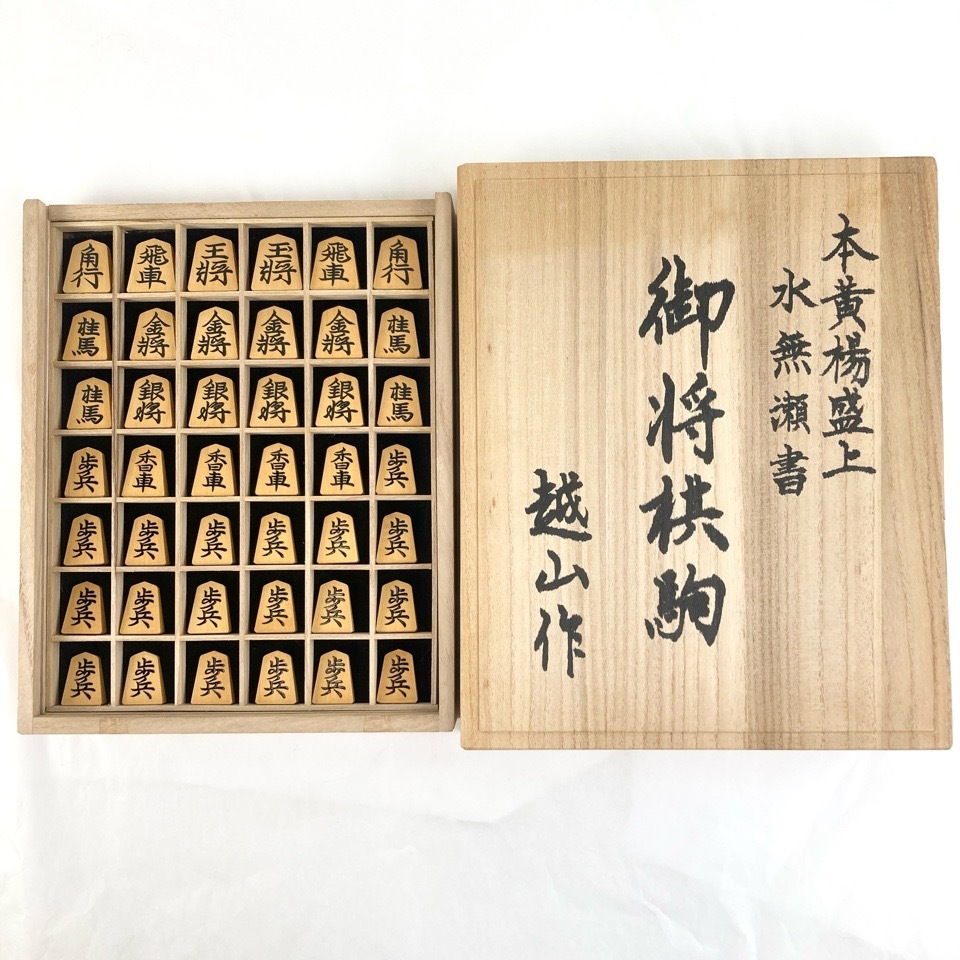 角行 飛車 王將 玉將 飛車 角行
桂馬 金將 金將 金將 金將 桂馬
桂馬 銀将 銀将 銀将 銀将 桂馬
歩兵 香車 香車 香車 香車 歩兵
歩兵 歩兵 歩兵 歩兵 歩兵 歩兵
歩兵 歩兵 歩兵 歩兵 歩兵 歩兵
歩兵 歩兵 歩兵 歩兵 歩兵 歩兵
本黄楊盛上
水無瀬書
御将棋駒
越山作